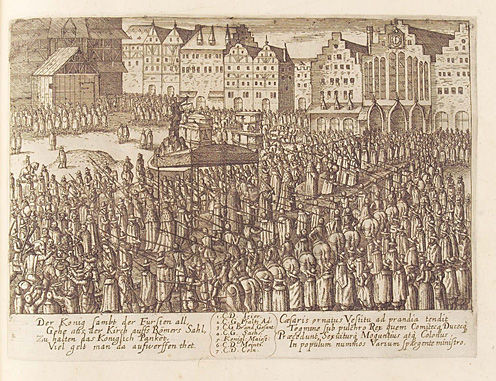 Der König sambt der Fürsten all,
Gehe auß der Kirch auffs Römers Sahl,
Zu halten das Königlich Panket,
Viel gelt man da auffwerffen thet.
1. C. D. Trier.
4. C. G. Sachs.
5. Königl. Maiest.
6. C. D. Mentz.
7. C. D. Coln.
Cæsaris ornatus Vestitu ad prandia tendit
Tegmine sub pulchro Rex quem Comitesq Ducesq
Præcedunt, Sequiturq Moguntius atq Colonus
In populum nummos Varium spargente ministro.